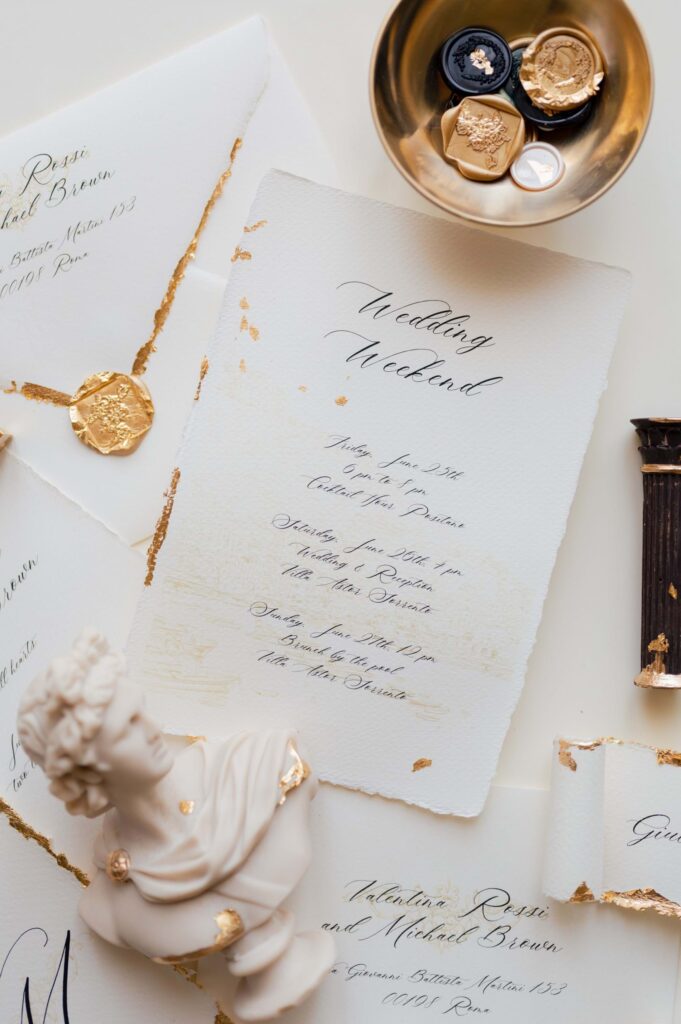 Rossi
Michael Brown
Battista Martini 153
00198 Roma
Wedding
Weekend
Friday, June 25th
6 pm to 8 pm
Cocktail Hour Positano
Saturday, June 26th, 4 pm
Wedding & Reception
Villa Astor Sorrento
Sunday, June 27th 12 pm
Brunch by the pool
Villa Astor Sorrento
Brown
hearts
two
Valentina Rossi
and Michael Brown
Giovanni Battista Martini 153
00198 Roma
Giu
M